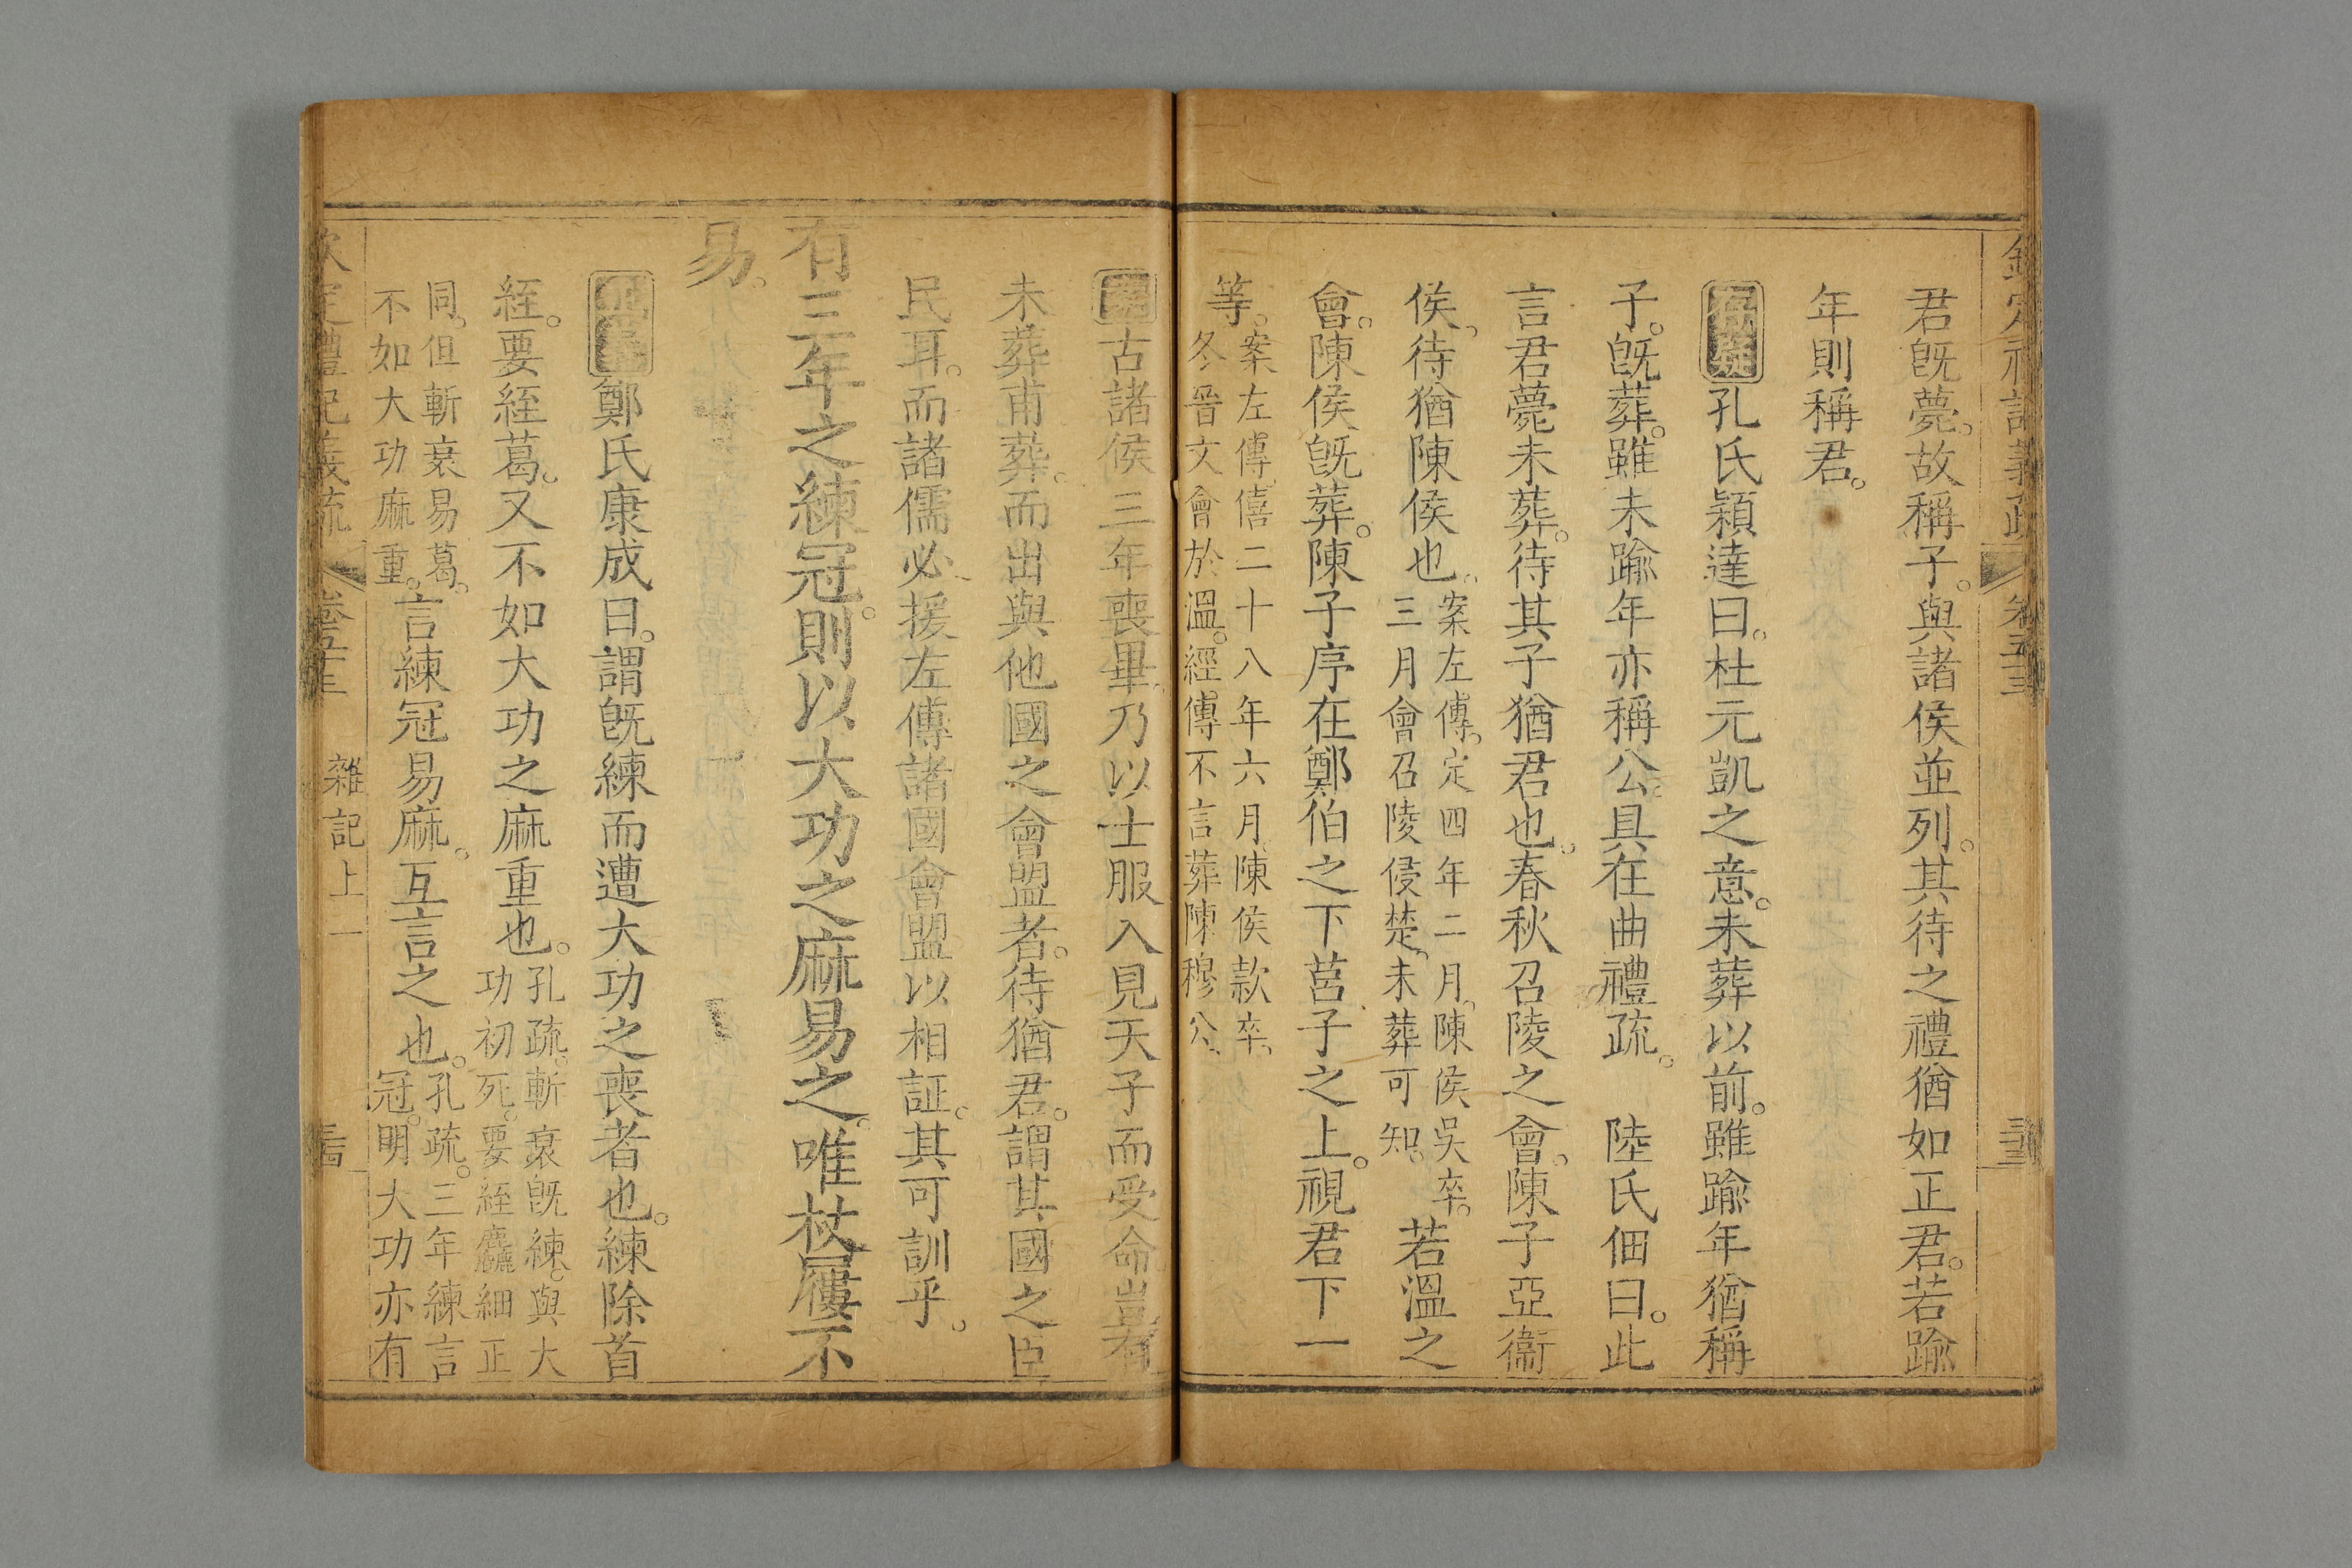 君旣薨。故稱子。與諸侯並列。其待之禮猶如正君。若踰
年則稱君。
孔氏穎達曰。杜元凱之意。未葬以前。雖踰年猶稱
子。旣葬。雖未踰年亦稱公。具在曲禮疏。 陸氏佃曰。此
言君薨未葬。待其子猶君也。春秋召陵之會。陳子亞衞
侯。待猶陳侯也。
案左傳。定四年二月。陳侯吳卒。
三月會召陵侵楚。未葬可知。
若溫之
會。陳侯旣葬。陳子序在鄭伯之下莒子之上。視君下一
等。
案左傳僖二十八年六月。陳侯款卒。
冬晉文會於溫。經傳不言葬陳穆公。
古諸侯三年喪畢。乃以士服入見天子而受命。豈有
未葬甫葬。而出與他國之會盟者。待猶君。謂其國之臣
民耳。而諸儒必援左傳諸國會盟以相証。其可訓乎。
有三年之練冠。則以大功之麻易之。唯杖屨不
易。
正義鄭氏康成曰。謂旣練而遭大功之喪者也。練除首
絰。要絰葛。又不如大功之麻重也。
孔疏。斬衰旣練。與大
功初死。要絰麤細正
同。但斬衰易葛。
不如大功麻重。
言練冠易麻。互言之也。
孔疏。三年練言
冠。明大功亦有
欽定禮記義疏 卷五十三 雜記上一